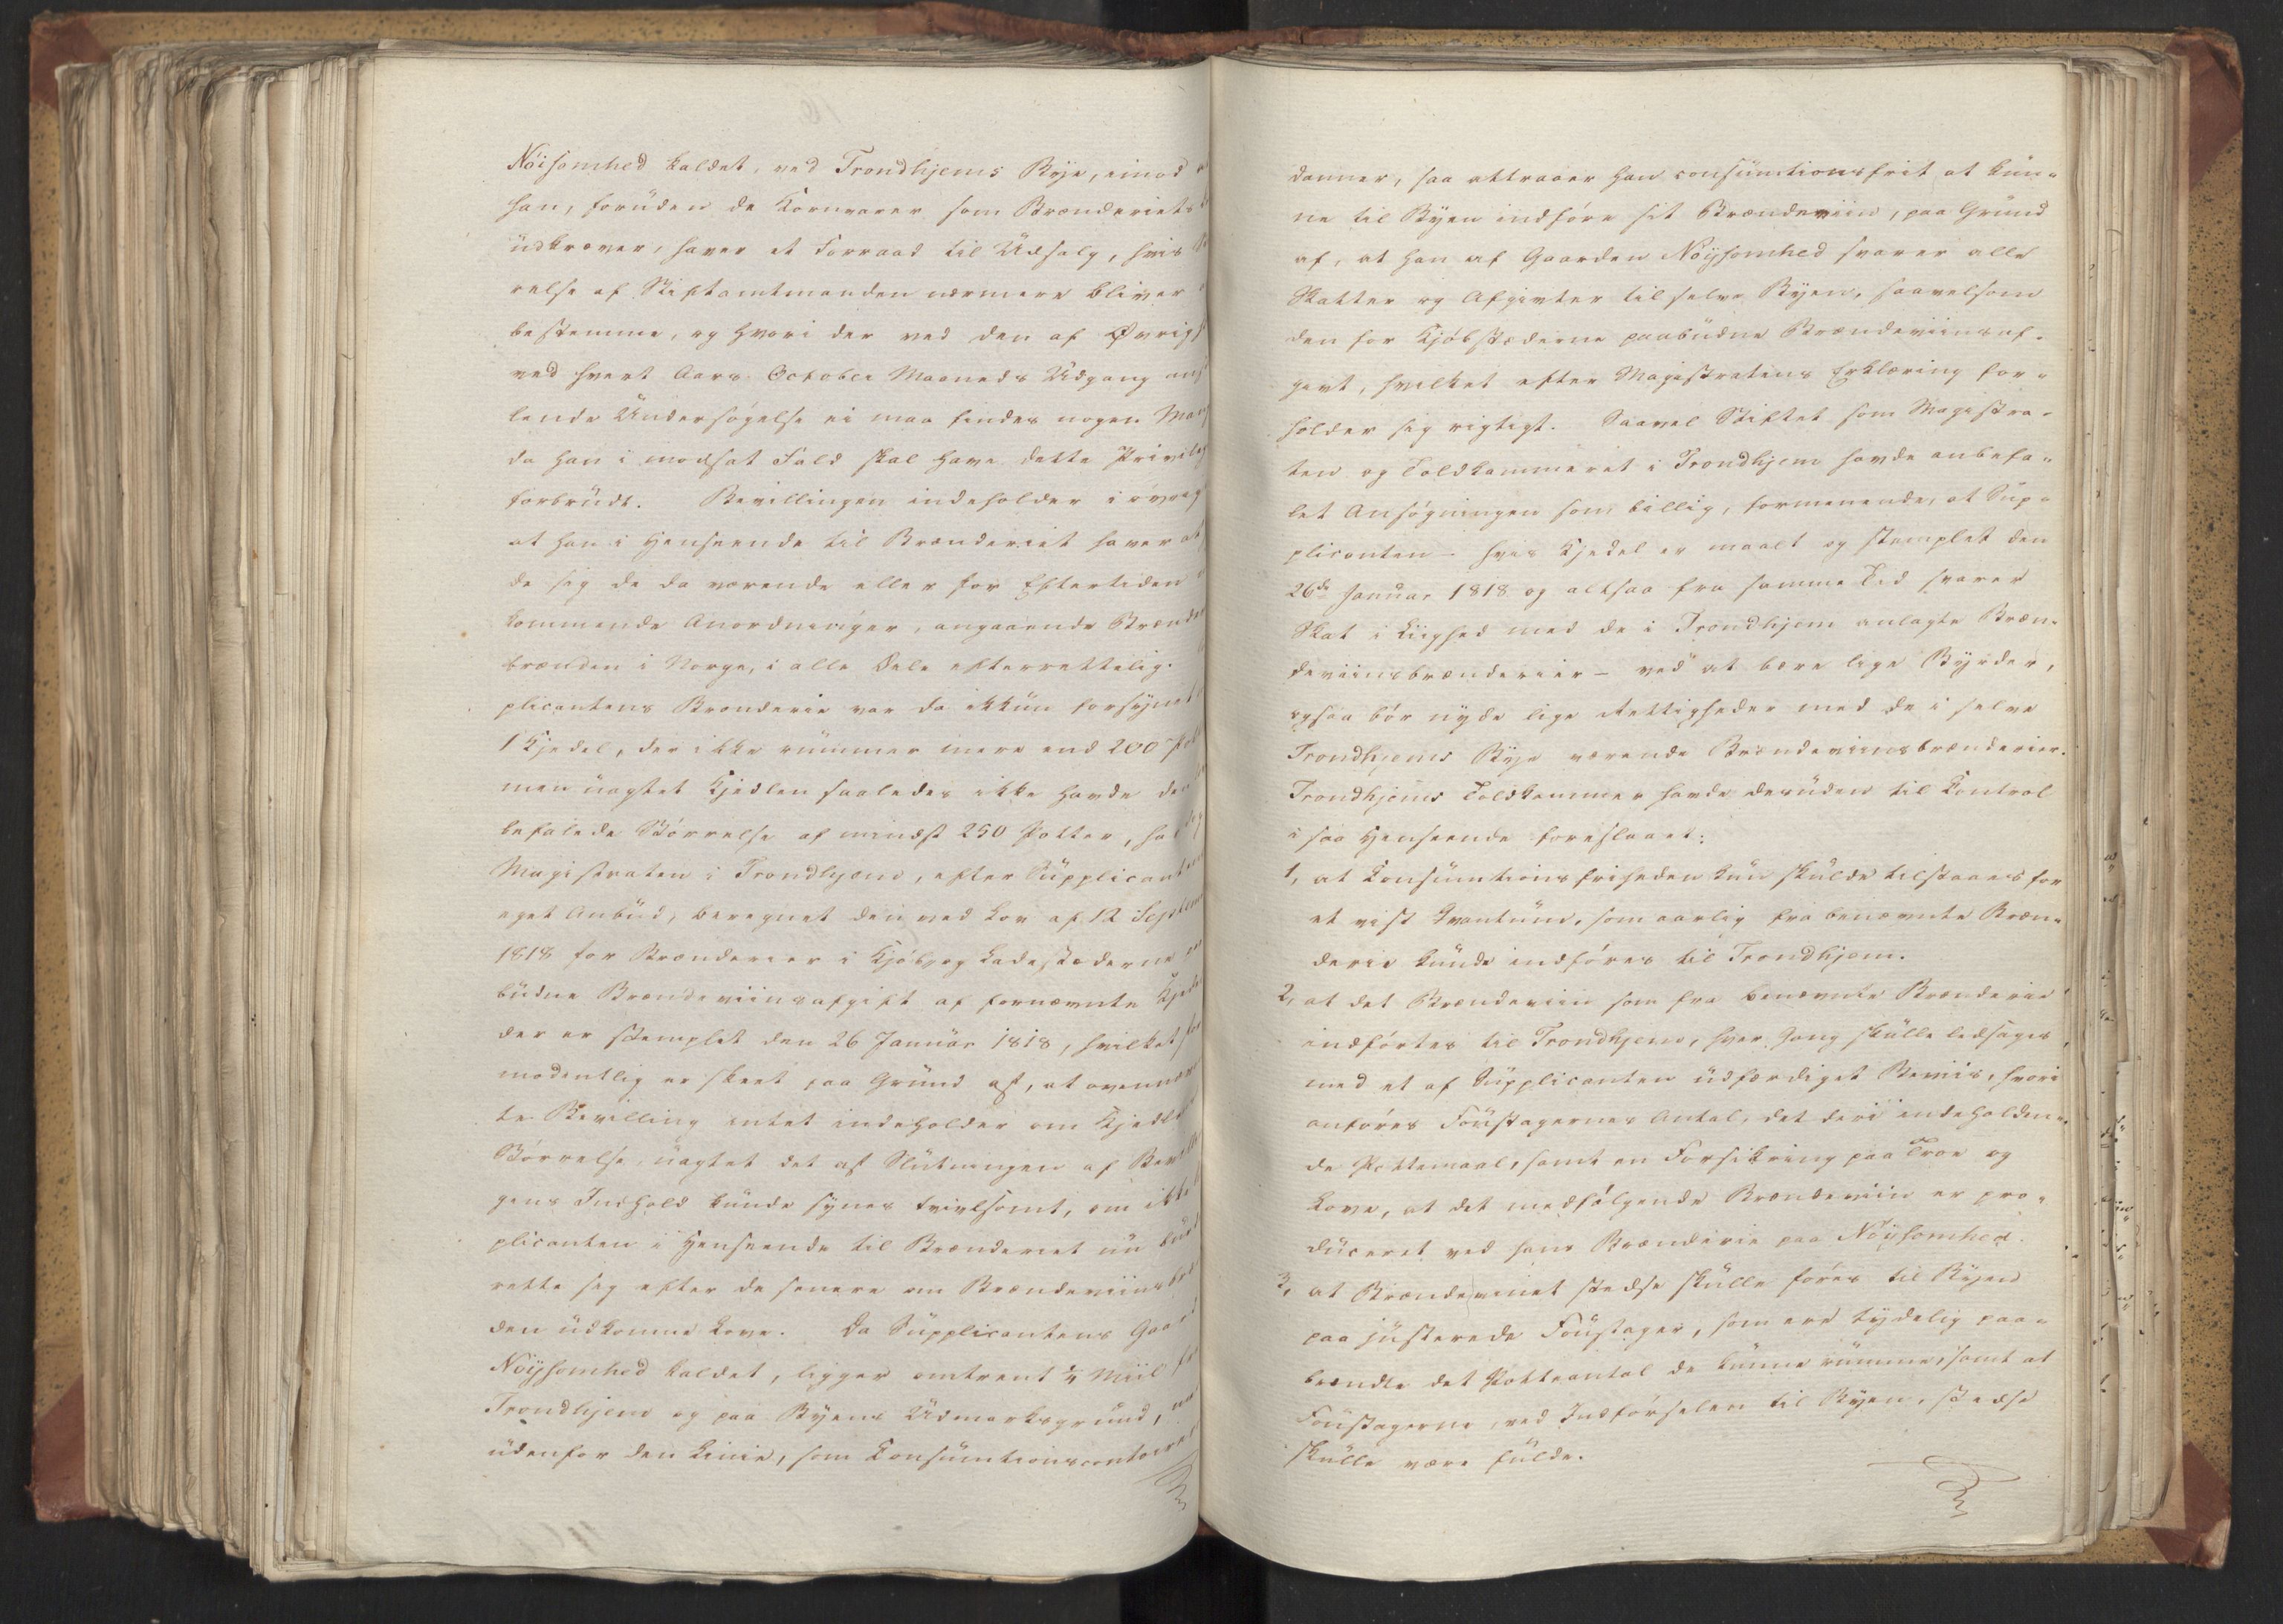 Nöisomhed kaldet, ved Trondhjems Bye, imod
han, foruden de Kornvarer som Brænderiets
udkræver, haver et Forraad til Udsalg, hvis
relse af Stiftamtmanden nærmere bliver
bestemme, og hvori der ved den af Øvrigh
ved hvert Aars October Maaneds Udgang ans
lende Undersøgelse ei maa findes nogen Man
da han i modsat Fald skal have dette Privileg
forbrudt. Bevillingen indeholder i øvrig
at han i Henseende til Brænderiet haver at
de sig de da værende eller for Eftertiden
kommende Anordninger, angaaende Brænde
brænden i Norge, i alle Dele efterrettelig.
plicantens Brænderie var da ikkun forsynet
1 Kjedel, der ikke rummer mere end 200 Pot
men uagtet Kjedlen saaledes ikke havde den
befalede Størrelse af mindst 250 Potter, ha
Magistraten i Trondhjem, efter Supplicanten
eget Anbud, beregnet den ved Lov af 12 Septem
1818 for Brænderier i Kjøb og Ladestæderne paa
budne Brændeviinsafgift af fornævnte Kjedel
der er stemplet den 26 Januar 1818, hvilket for
modentlig er skeet paa Grund af, at ovennævn
te Bevilling intet indeholder om Kjedlens
Størrelse, uagtet det af Slutningen af Bevillin
gens Indhold kunde synes tvivlsomt, om ikke
plicanten i Henseende til Brænderiet nu burde
rette sig efter de senere om Brændeviinsbræn
den udkomne Love. Da Supplicantens Gaard
Nöysomhed kaldet, ligger omtrent 1/4 Miil fra
Trondhjem og paa Byens Udmarksgrund, men
udenfor den Linie, som Consumtionscontoiret
danner, saa attraaer han consumtionsfrit at kun-
ne til Byen indføre sit Brændeviin, paa Grund
af, at han af Gaarden Nöysomhed svarer alle
Skatter og Afgivter til selve Byen, saavelsom
den for Kjøbstæderne paabudne Brændeviinsaf-
givt, hvilket efter Magistratens Erklæring for-
holder sig rigtigt. Saavel Stiftet som Magistra-
ten og Toldkammeret i Trondhjem havde anbefa-
let Ansøgningen som billig, formenende, at Sup-
plicanten - hvis Kjedel er maalt og stemplet den
26de Januar 1818 og altsaa fra samme Tid svarer
Skat i Liighed med de i Trondhjem anlagte Bræn-
deviinsbrænderier - ved at bære lige Byrder,
ogsaa bør nyde lige Rettigheder med de i selve
Trondhjems Bye værende Brændeviinsbrænderier.
Trondhjems Toldkammer havde desuden til Control
i saa Henseende foreslaaet:
1, at Consumtionsfriheden kun skulde tilstaaes for
et vist Qvantum, som aarlig fra benævnte Bræn-
derie kunde indføres til Trondhjem.
2, at det Brændeviin som fra benævnte Brænderie
indførtes til Trondhjem, hver Gang skulle ledsages
med et af Supplicanten udfærdiget Beviis, hvori
anføres Foustagernes Antal, det deri indeholden-
de Pottemaal, samt en Forsikring paa Troe og
Love, at det medfølgende Brændeviin er pro-
duceret ved hans Brænderie paa Nöysomhed.
3, at Brændeviinet stedse skulle føres til Byen
paa justerede Foustager, som ere tydelig paa-
brændte det Potteantal de kunne rumme, samt at
Foustagerne, ved Indførselen til Byen, stedse
skulle være fulde.